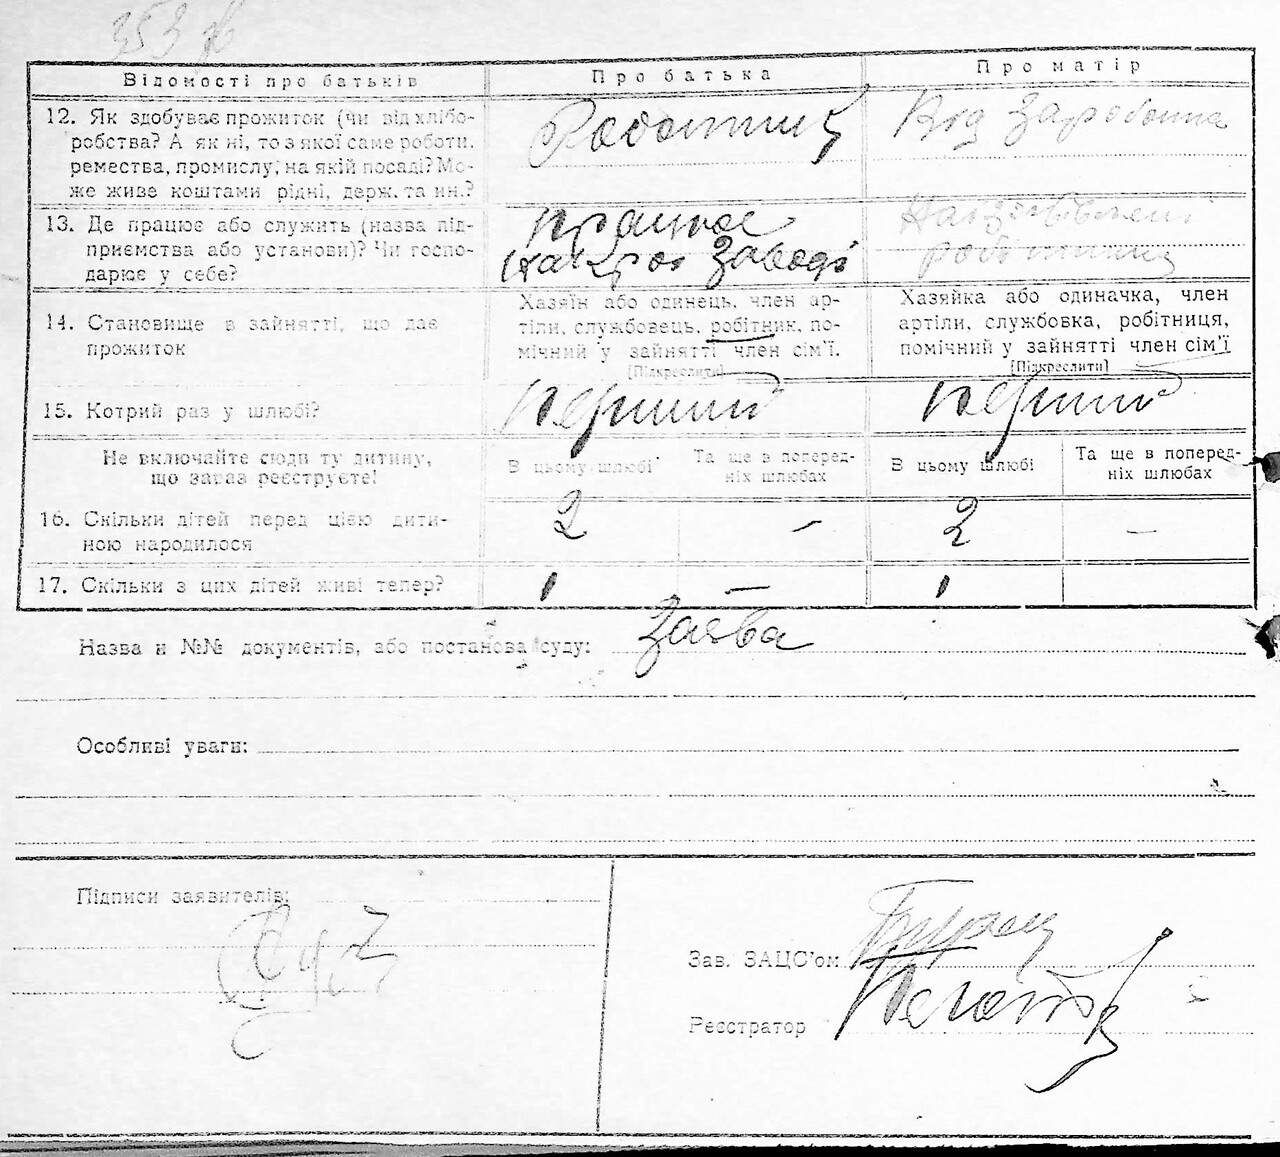 353 зв
Відомості про батьків
Про батька
Про матір
12. Як здобуває прожиток (чи від хлібо-
робства? А як ні, то з якої саме роботи,
ремества, промислу, на якій посаді? Мо-
же живе коштами рідні, держ. та ин.?
Робітник
Від Заробітка
13. Де працює або служить (назва під-
приємства або установи)? Чи госпо-
дарює у себе?
працює
Заводі
робітниц
14. Становище в зайнятті, що дає
прожиток
Хазяїн або одинець, член ар-
тіли, службовець, робітник, по-
мічний у зайнятті член сім'ї.
[Підкреслити]
Хазяйка або одиначка, член
артіли, службовка, робітниця,
помічний у зайнятті член сім'ї
[Підкреслити]
15. Котрий раз у шлюбі?
перший
перший
Не включайте сюди ту дитину,
що зараз реєструєте!
В цьому шлюбі
Та ще в поперед-
ніх шлюбах
В цьому шлюбі
Та ще в поперед-
ніх шлюбах
16. Скільки дітей перед цією дити-
ною народилося
2
–
2
–
17. Скільки з цих дітей живі тепер?
1
–
1
Назва и №№ документів, або постанова суду: Заява
Особливі уваги:
Підписи заявителів:
Зав. ЗАЦС'ом
Реєстратор